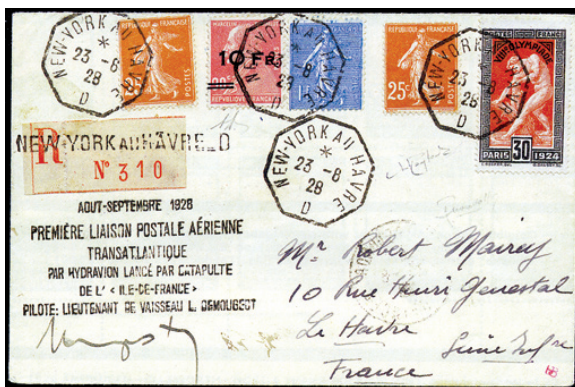 NEW-YORK AU HAVRE
23-8
28
D
RÉPUBLIQUE FRANÇAISE
25c
POSTES
10 FR.
RÉPUBLIQUE FRANÇAISE
NEW-YORK AU HAVRE
23-8
28
D
RÉPUBLIQUE FRANÇAISE
25c
POSTES
NEW-YORK AU HAVRE
23-8
28
D
VIIIe OLYMPIADE
PARIS 30 1924
NEW-YORK AU HAVRE_D
R
N° 310
NEW-YORK AU HAVRE
23-8
28
D
AOUT-SEPTEMBRE 1928
PREMIÈRE LIAISON POSTALE AÉRIENNE
TRANSATLANTIQUE
PAR HYDRAVION LANCÉ PAR CATAPULTE
DE L' < ILE-DE-FRANCE>
PILOTE: LIEUTENANT DE VAISSEAU L. DEMOUGEOT
Mr Robert
10 Rue Henri Genestal
Le Havre
France